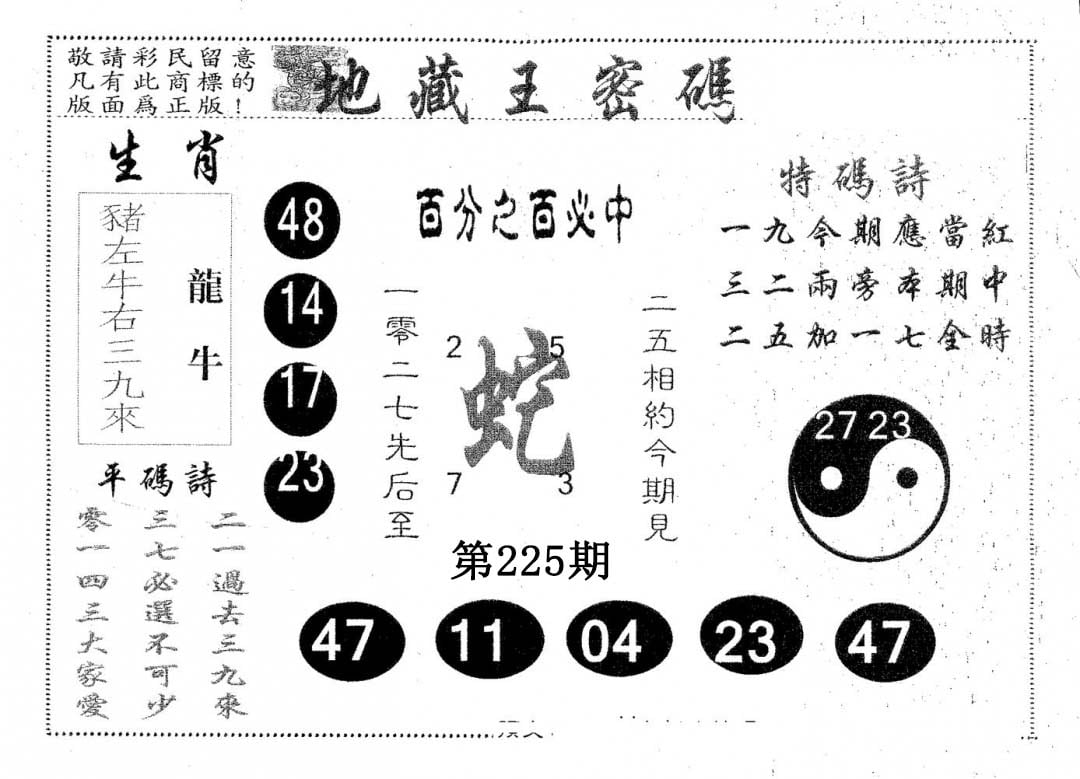 敬請彩民留意
凡有此商標的
版面爲正版！
地藏王密碼
生肖
豬左牛右三九來
龍牛
48
14
17
23
百分之百必中
一零二七先后至
2 5
蛇
7 3
二五相約今期見
特碼詩
一九今期應當紅
三二兩旁本期中
二五加一七全時
27 23
平碼詩
二一過去三九來
三七必選不可少
零一四三大家愛
第225期
47 11 04 23 47